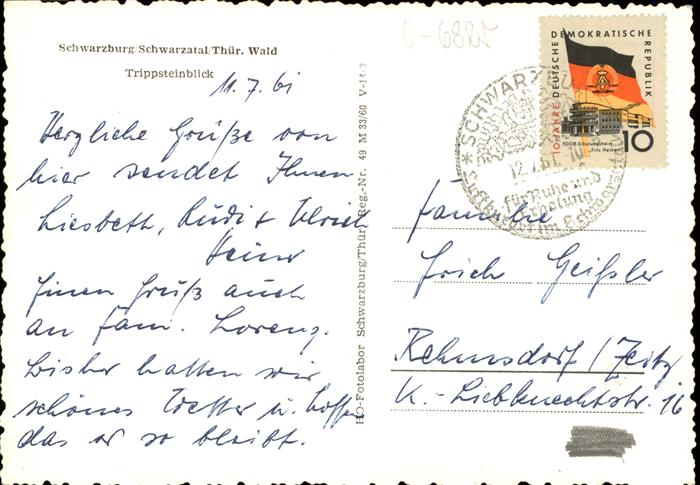 Schwarzburg/Schwarzatal/Thür. Wald
Trippsteinblick
11.7.61
Herzliche Grüße von
hier sendet Ihnen
Liesbeth, Rudi + Ulrich
Einen Gruß auch
an Fam. Lorenz.
Bisher hatten wir
schönes Wetter u. hoffen
das er so bleibt.
HO-Fotolabor Schwarzburg/Thür. Reg.-Nr. 49 M 33/60 V-14-7
0-6825
10 JAHRE DEUTSCHE DEMOKRATISCHE REPUBLIK
FDGB-Erholungsheim
"Fritz Heckert"
10
SCHWARZBU
12.7.61. 10
für Ruhe und
Erholung
Luftkurort im Schwarzatal
Familie
Erich Geißler
Rehmsdorf/Zeitz
K.-Liebknechtstr. 16